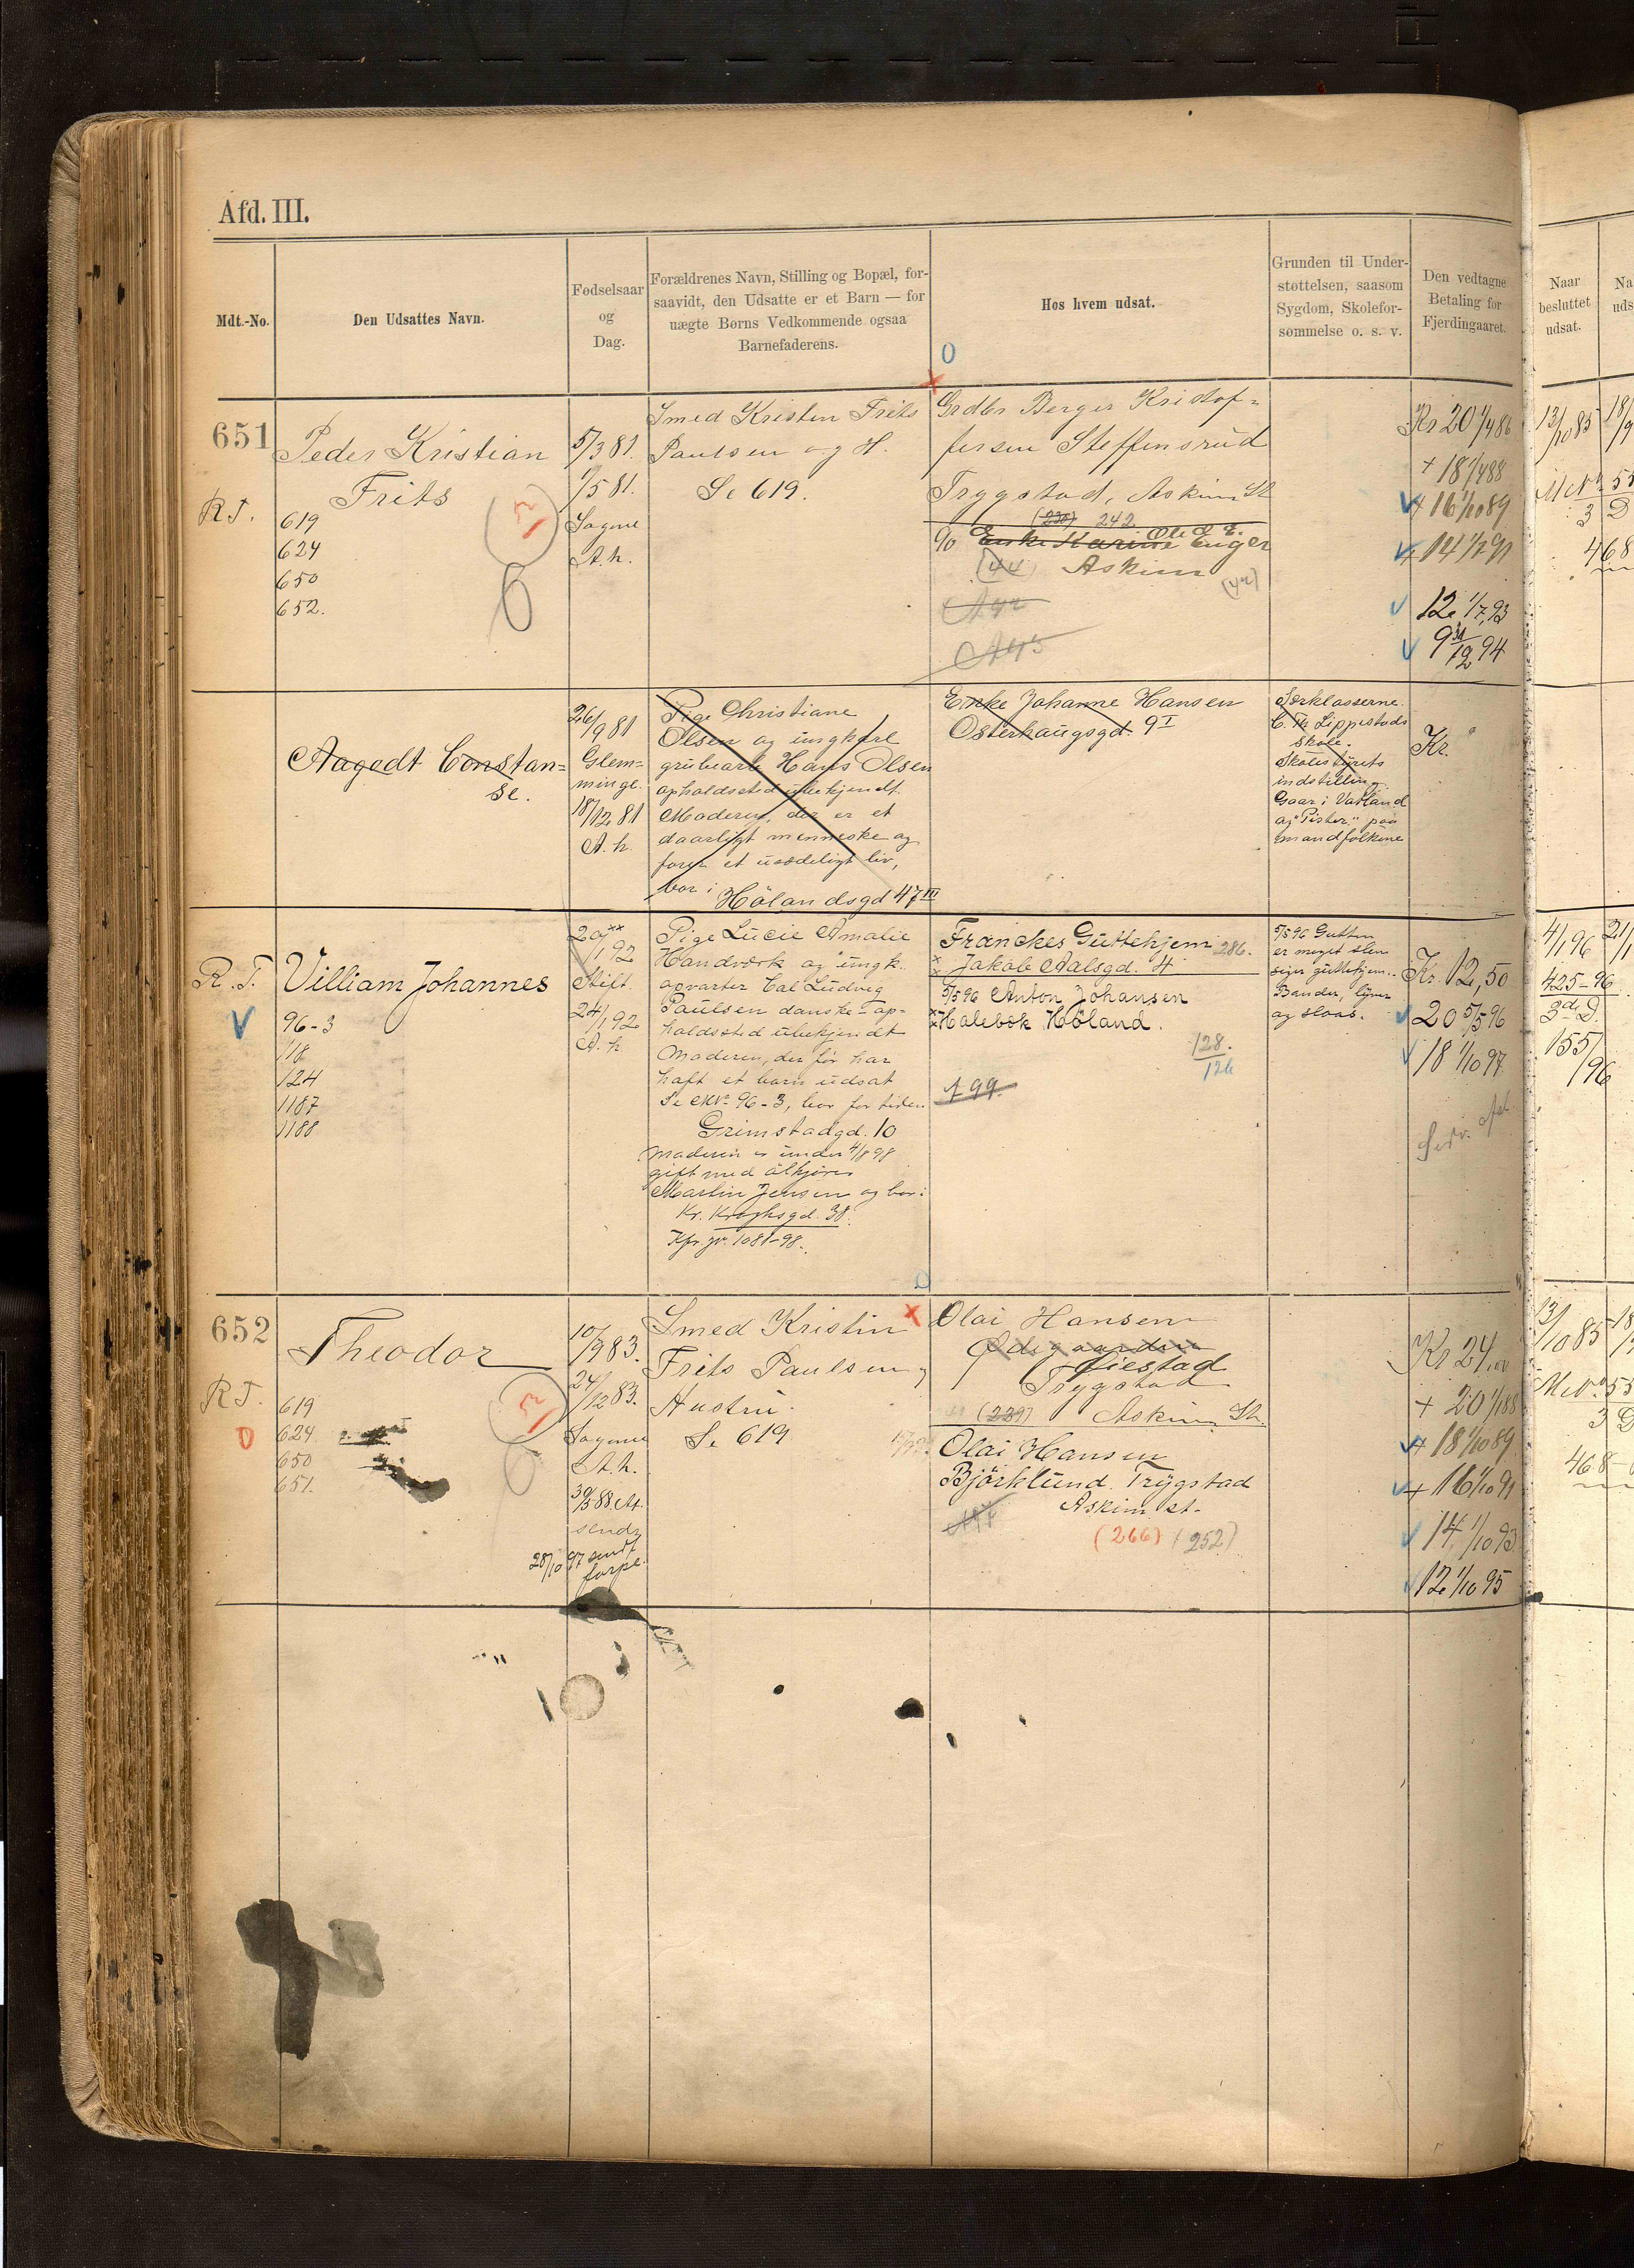 Afd. III.
Mdt.-No.
Den Udsattes Navn.
Fødselsaar
og
Dag.
Forældrenes Navn, Stilling og Bopæl, for-
saavidt, den Udsatte er et Barn — for
uægte Børns Vedkommende ogsaa
Barnefaderens.
Hos hvem udsat.
Grunden til Under-
støttelsen, saasom
Sygdom, Skolefor-
sømmelse o. s. v.
Den vedtagne
Betaling for
Fjerdingaaret.
Naar
besluttet
udsat.
Na
uds
651
R.T.
Peder Kristian
Frits
619
624
650
652.
5/3 81.
/5 81.
Sagene
A.h.
Smed Kristen Frits
Paulsen og H.
Se 619.
Grdbr Berger Kristof-
fersen Steffensrud
Trygstad, Askim St
(230) 242
Ole d. E.
90 Enke Karine Euger
(44) Askim
Kr 20 1/4 86
+ 18 1/4 88
+ 16 1/10 89
+ 14 1/2 91
12 1/7 93
9 31/12 94
13/10 85
18/9
3 D
468
Aagodt Constan-
se.
26/9 81
Glem-
minge.
18/12 81
A.h.
Pige Christiane
Olsen og ungkarl
grubearb Hans Olsen
opholdssted ubekjendt.
Moderen, der er et
daarligt menneske og
fører et usædeligt liv,
bor i
Hölandsgd 47 III
Enke Johanne Hansen
Osterhaugsgd. 9 I
Særklasserne.
C. Th Lippestads
skole.
Skolestyrets
indstilling.
Gaar i Vatland
og "Pisker" paa
mandfolkene
Kr.
R.T.
Villiam Johannes
96-3
118
124
1187
1188
20/1 92
Stift.
24/1 92
A.h
Pige Lucie Amalie
Handværk og ungk.
opvarter Cal Ludvig
Paulsen danske - op-
holdssted ubekjendt
Moderen, der før har
haft et barn udsat
Se MNo 96-3, bor for tiden
Grimstadgd. 10
Moderen er under 4/8 98
gift med ölkjörer
Martin Jensen og bor i
Kr. Kroghsgd. 38.
Kfr. jr. 1081-98.
Franckes Guttehjem 286.
Jakob Aalsgd. 4
5/5 96 Anton Johansen
Halebök Höland.
128.
126
A 99
5/5 96 Gutten
er meget slem
siger guttehjem..
Bander, lyver
og slaas.
Kr. 12,50
20 5/5 96
18 1/10 97
4/1 96
21/1
425-96
3die D.
155/96
652
R.T.
Theodor
619
624
650
651.
10/9 83.
24/12 83.
Sagene
A.h.
30/5 88 At.
sendt
28/10 97 sendt
forpl.
Smed Kristin
Frits Paulsen og
Hustru.
Se 619
Olai Hansen
Ødegaarden
Trygstad
(239) Askim St.
Olai Hansen
Björklund. Trygstad
Askim st.
(266) (252)
Kr 24,00
+ 20 1/1 88
+ 18 1/10 89
+ 16 1/10 91
14 1/10 93
12 1/10 95
13/10 85
18
3 D
468